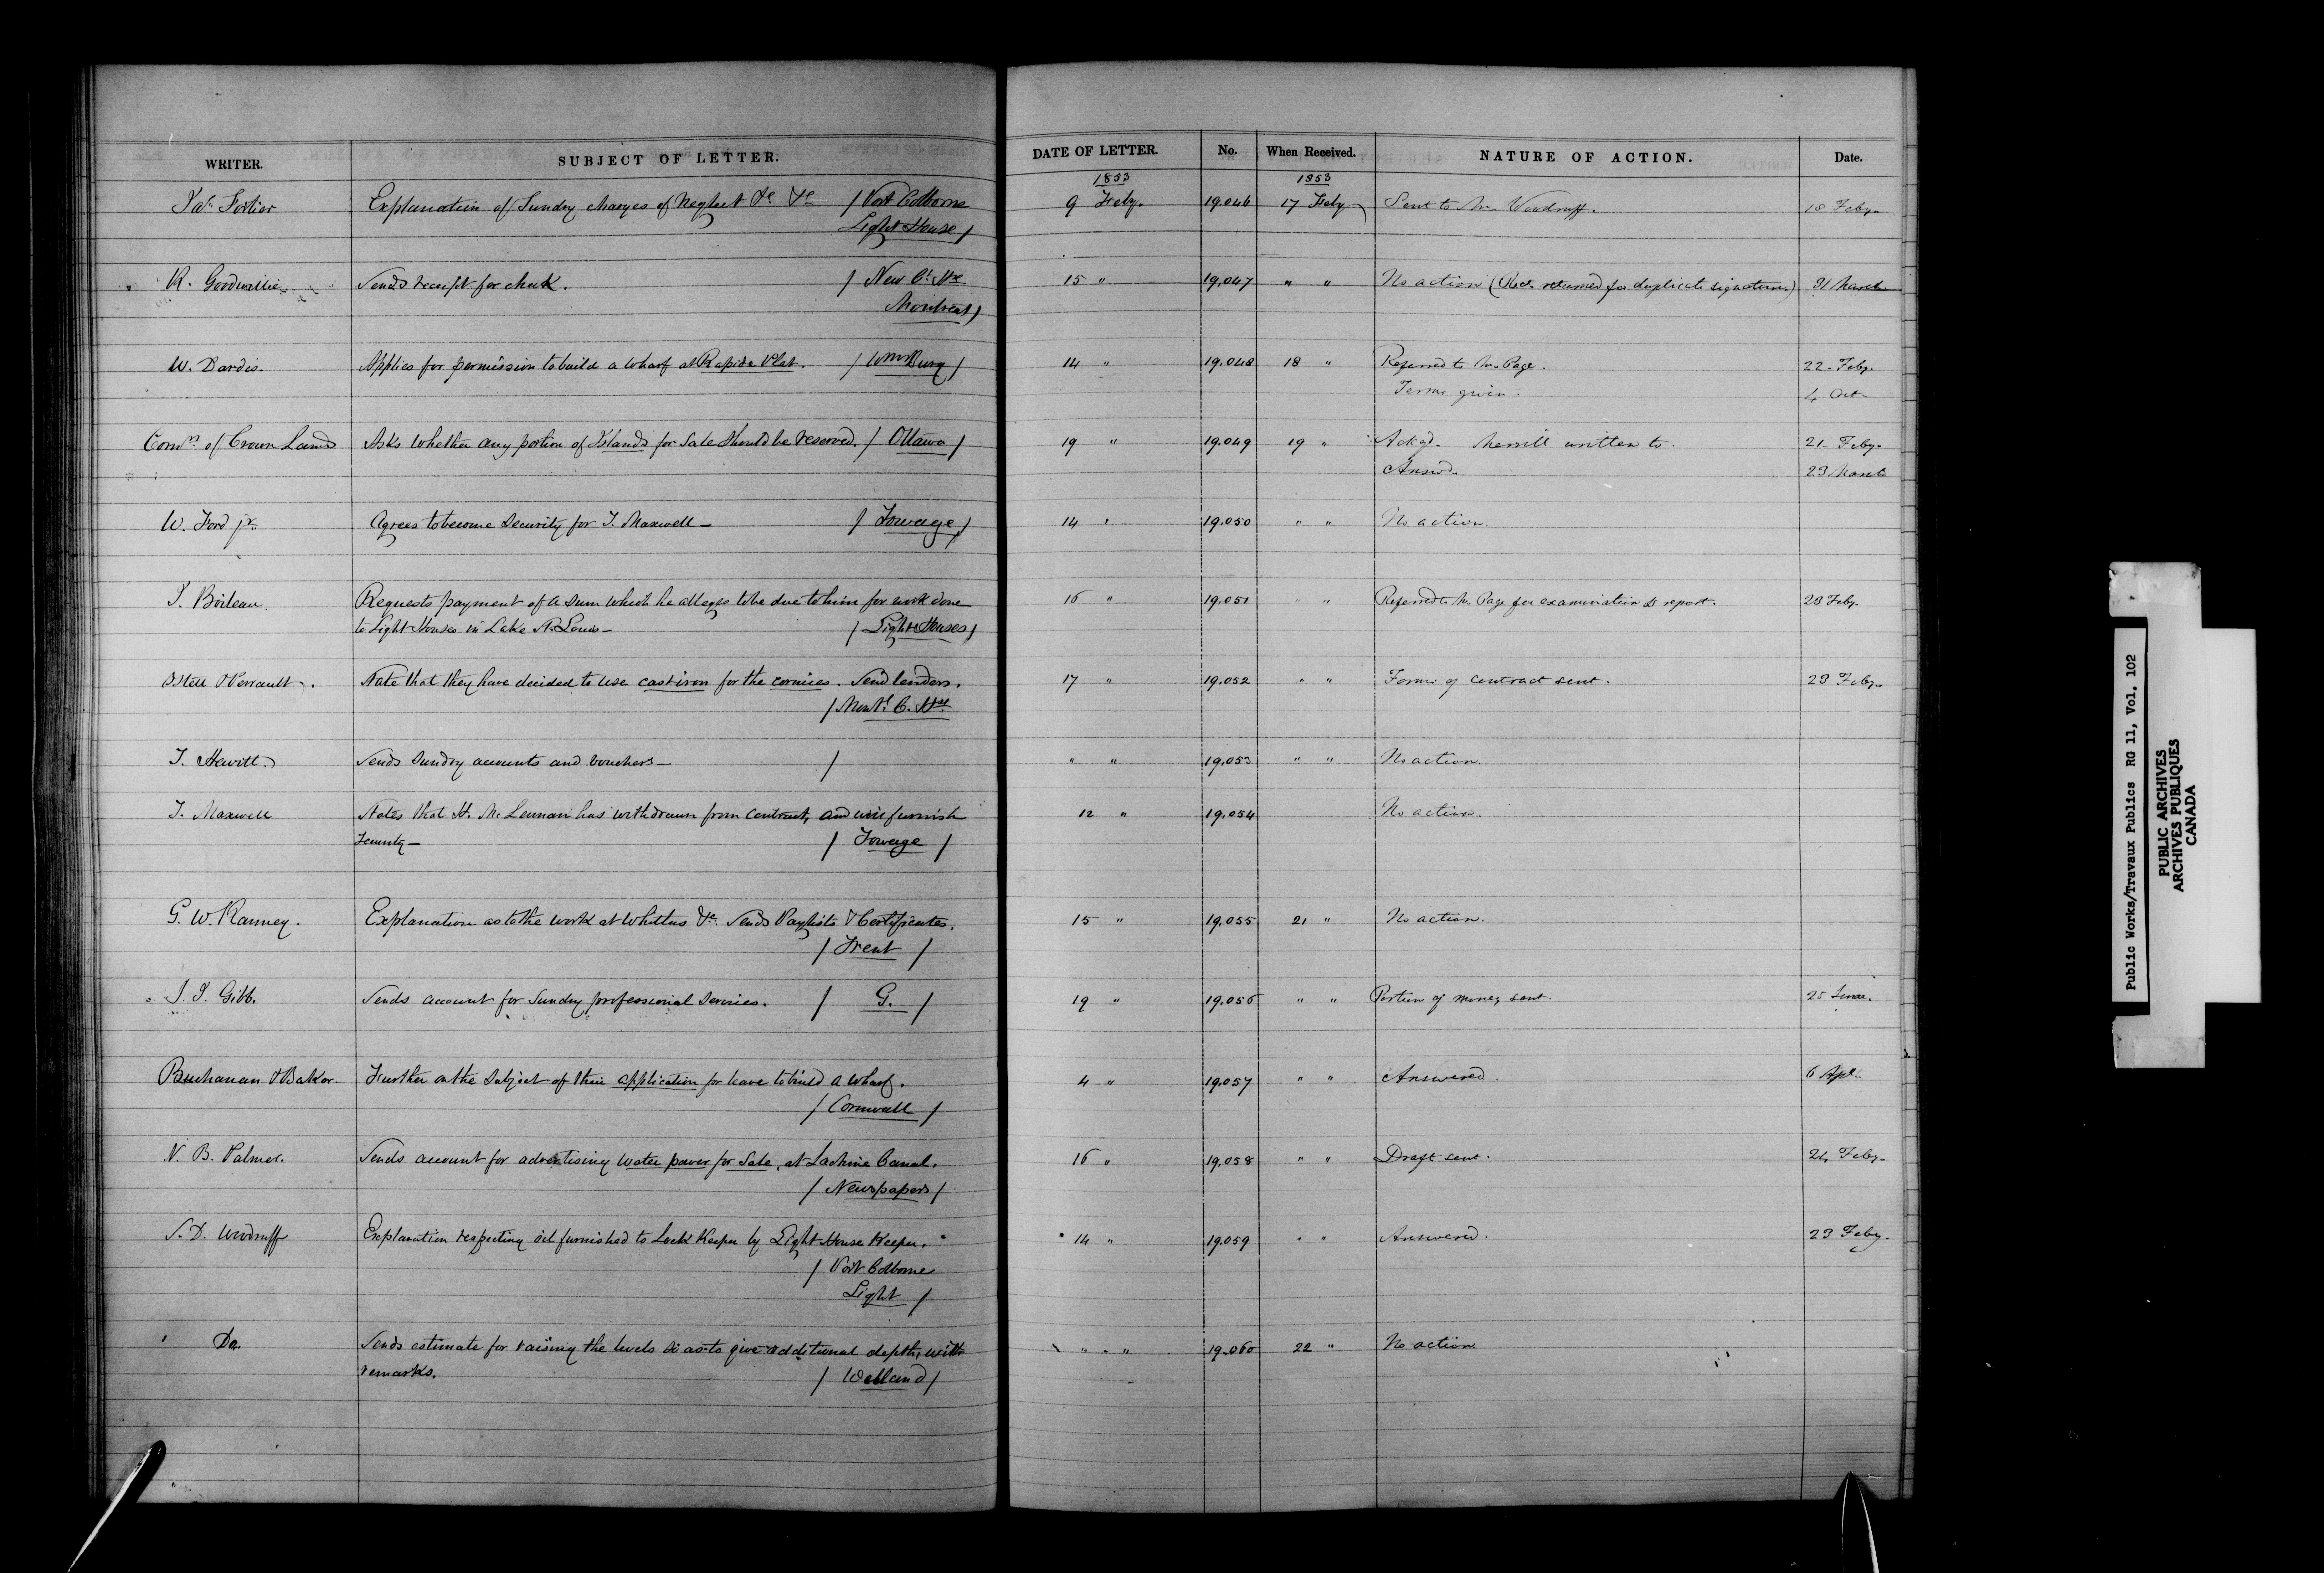 WRITER. SUBJECT OF LETTER. DATE OF LETTER. No. When Received. NATURE OF ACTION. Date.
1853 1853
Fortier Explanation of Sundry charges of Neglect &c &c / Port Colborne 9 Feby. 19.046 17 Feby Sent to Mr. Woodruff. 18 Feby.
Light House /
R. Goodwillie Sends receipt for check. / New Ct. Hse 15 " 19.047 " " No action (Rect. returned for duplicate signature.) 21 March
Montreal /
W. Dardis. Applies for permission to build a wharf at Rapide Plat. / WmsBurg / 14 " 19.048 18 " Referred to Mr. Page. 22. Feby.
Terms given. 4 Oct.
Comr. of Crown Lands Asks whether any portion of Islands for Sale should be reserved. / Ottawa / 19 " 19.049 19 " Ackgd. Merrill written to. 21. Feby.
Answd. 23 March
W. Ford jr. Agrees to become Security for T. Maxwell — / Towage / 14 " 19.050 " " No action.
Boileau. Requests payment of a Sum which he alleges to be due to him for work done 16 " 19.051 " " Referred to Mr. Page for examination & report. 23 Feby.
to Light Houses in Lake St. Louis — / Light Houses /
Ostell & Perrault. State that they have decided to use cast iron for the cornices. Send tenders. 17 " 19.052 " " Form of contract sent. 23 Feby.
/ Montl. C. Hse
T. Hewitt. Sends Sundry accounts and vouchers — / " " 19.053 " " No action.
T. Maxwell States that H. McLennan has withdrawn from contract, and will furnish 12 " 19.054 No action.
Security — / Towage /
G. W. Ranney. Explanation as to the work at Whitlas &c. Sends Paylists & Certificates. 15 " 19.055 21 " No action.
/ Trent /
Gibb. Sends account for Sundry professional Services. / G. / 19 " 19.056 " " Portion of money sent. 25 June.
Buchanan & Baker. Further on the Subject of their application for leave to build a Wharf. 4 " 19.057 " " Answered. 6 Apl.
/ Cornwall /
V. B. Palmer. Sends account for advertising water power for Sale, at Lachine Canal. 16 " 19.058 " " Draft sent. 24 Feby.
/ Newspapers /
S. D. Woodruff Explanation respecting oil furnished to Lock Keeper by Light House Keeper. 14 " 19.059 " " Answered. 23 Feby.
/ Port Colborne
Light /
Do. Sends estimate for raising the levels so as to give additional depth, with " " 19.060 22 " No action
remarks. / Welland /
Public Works/Travaux Publics RG 11, Vol. 102
PUBLIC ARCHIVES
ARCHIVES PUBLIQUES
CANADA